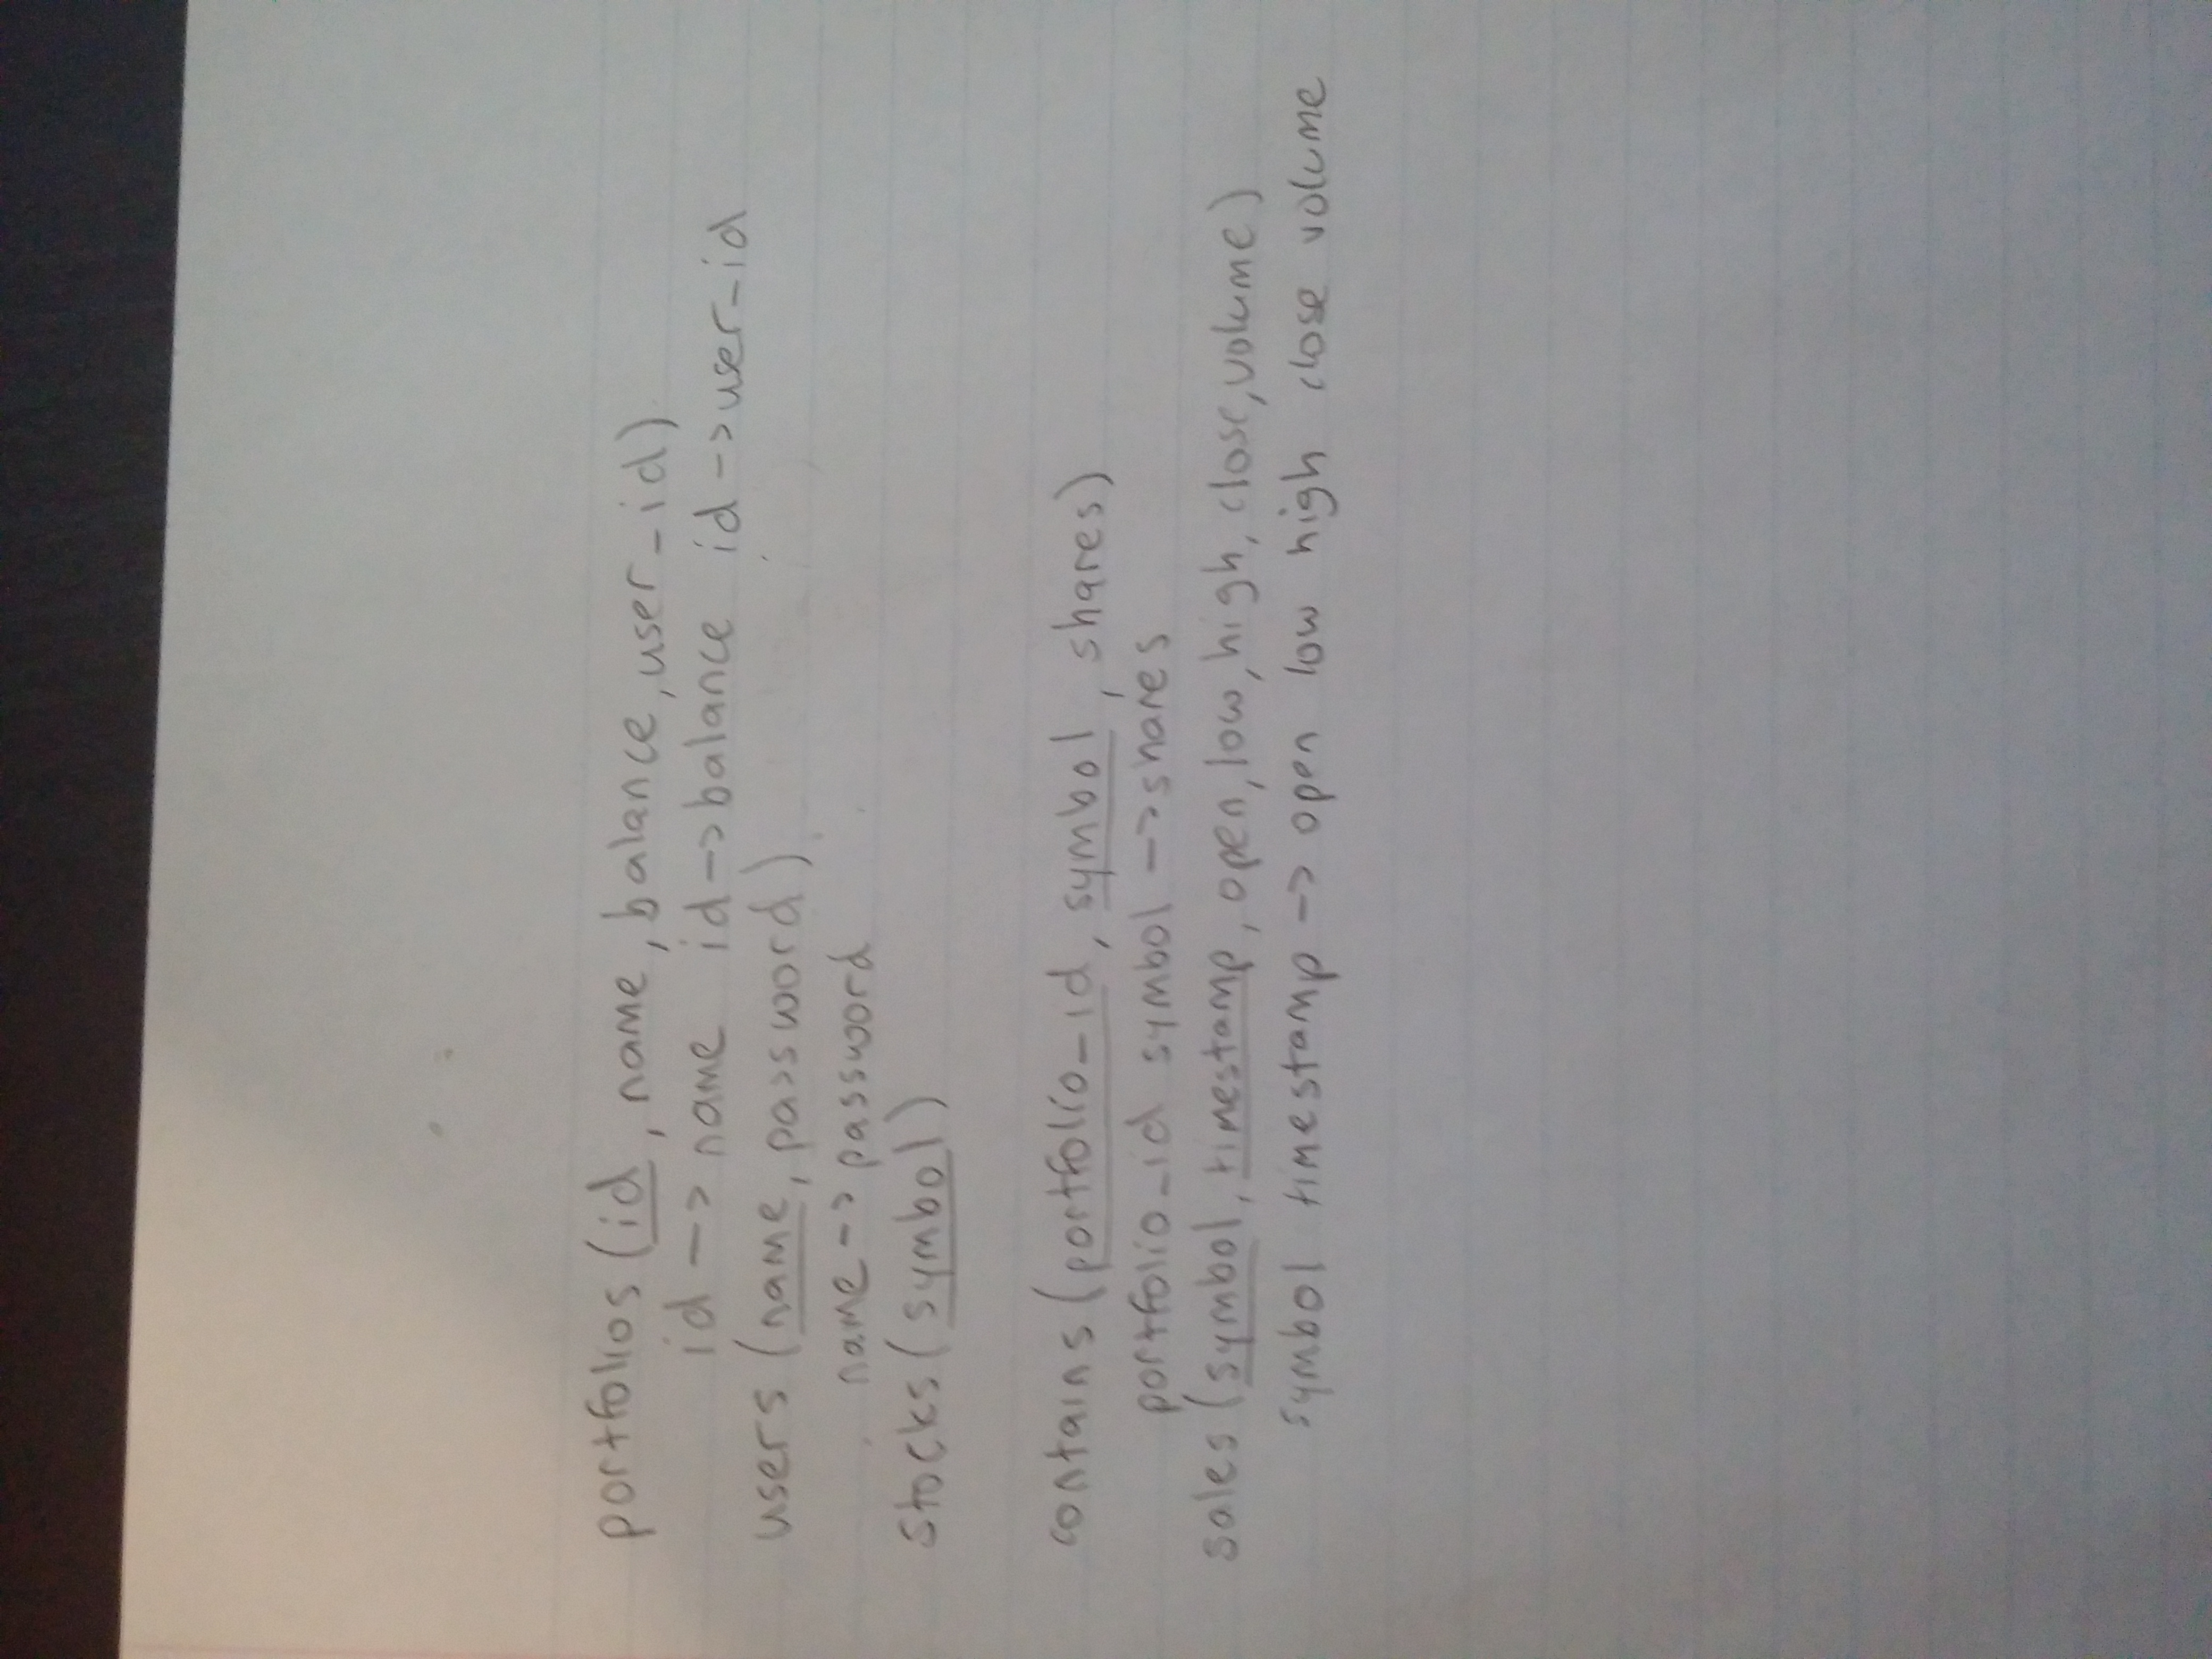 portfolios (id, name, balance, user_id)
id -> name id -> balance id -> user_id
users (name, password)
name -> password
stocks (symbol)
contains (portfolio_id, symbol, shares)
portfolio_id symbol -> shares
sales (symbol, timestamp, open, low, high, close, volume)
symbol timestamp -> open low high close volume